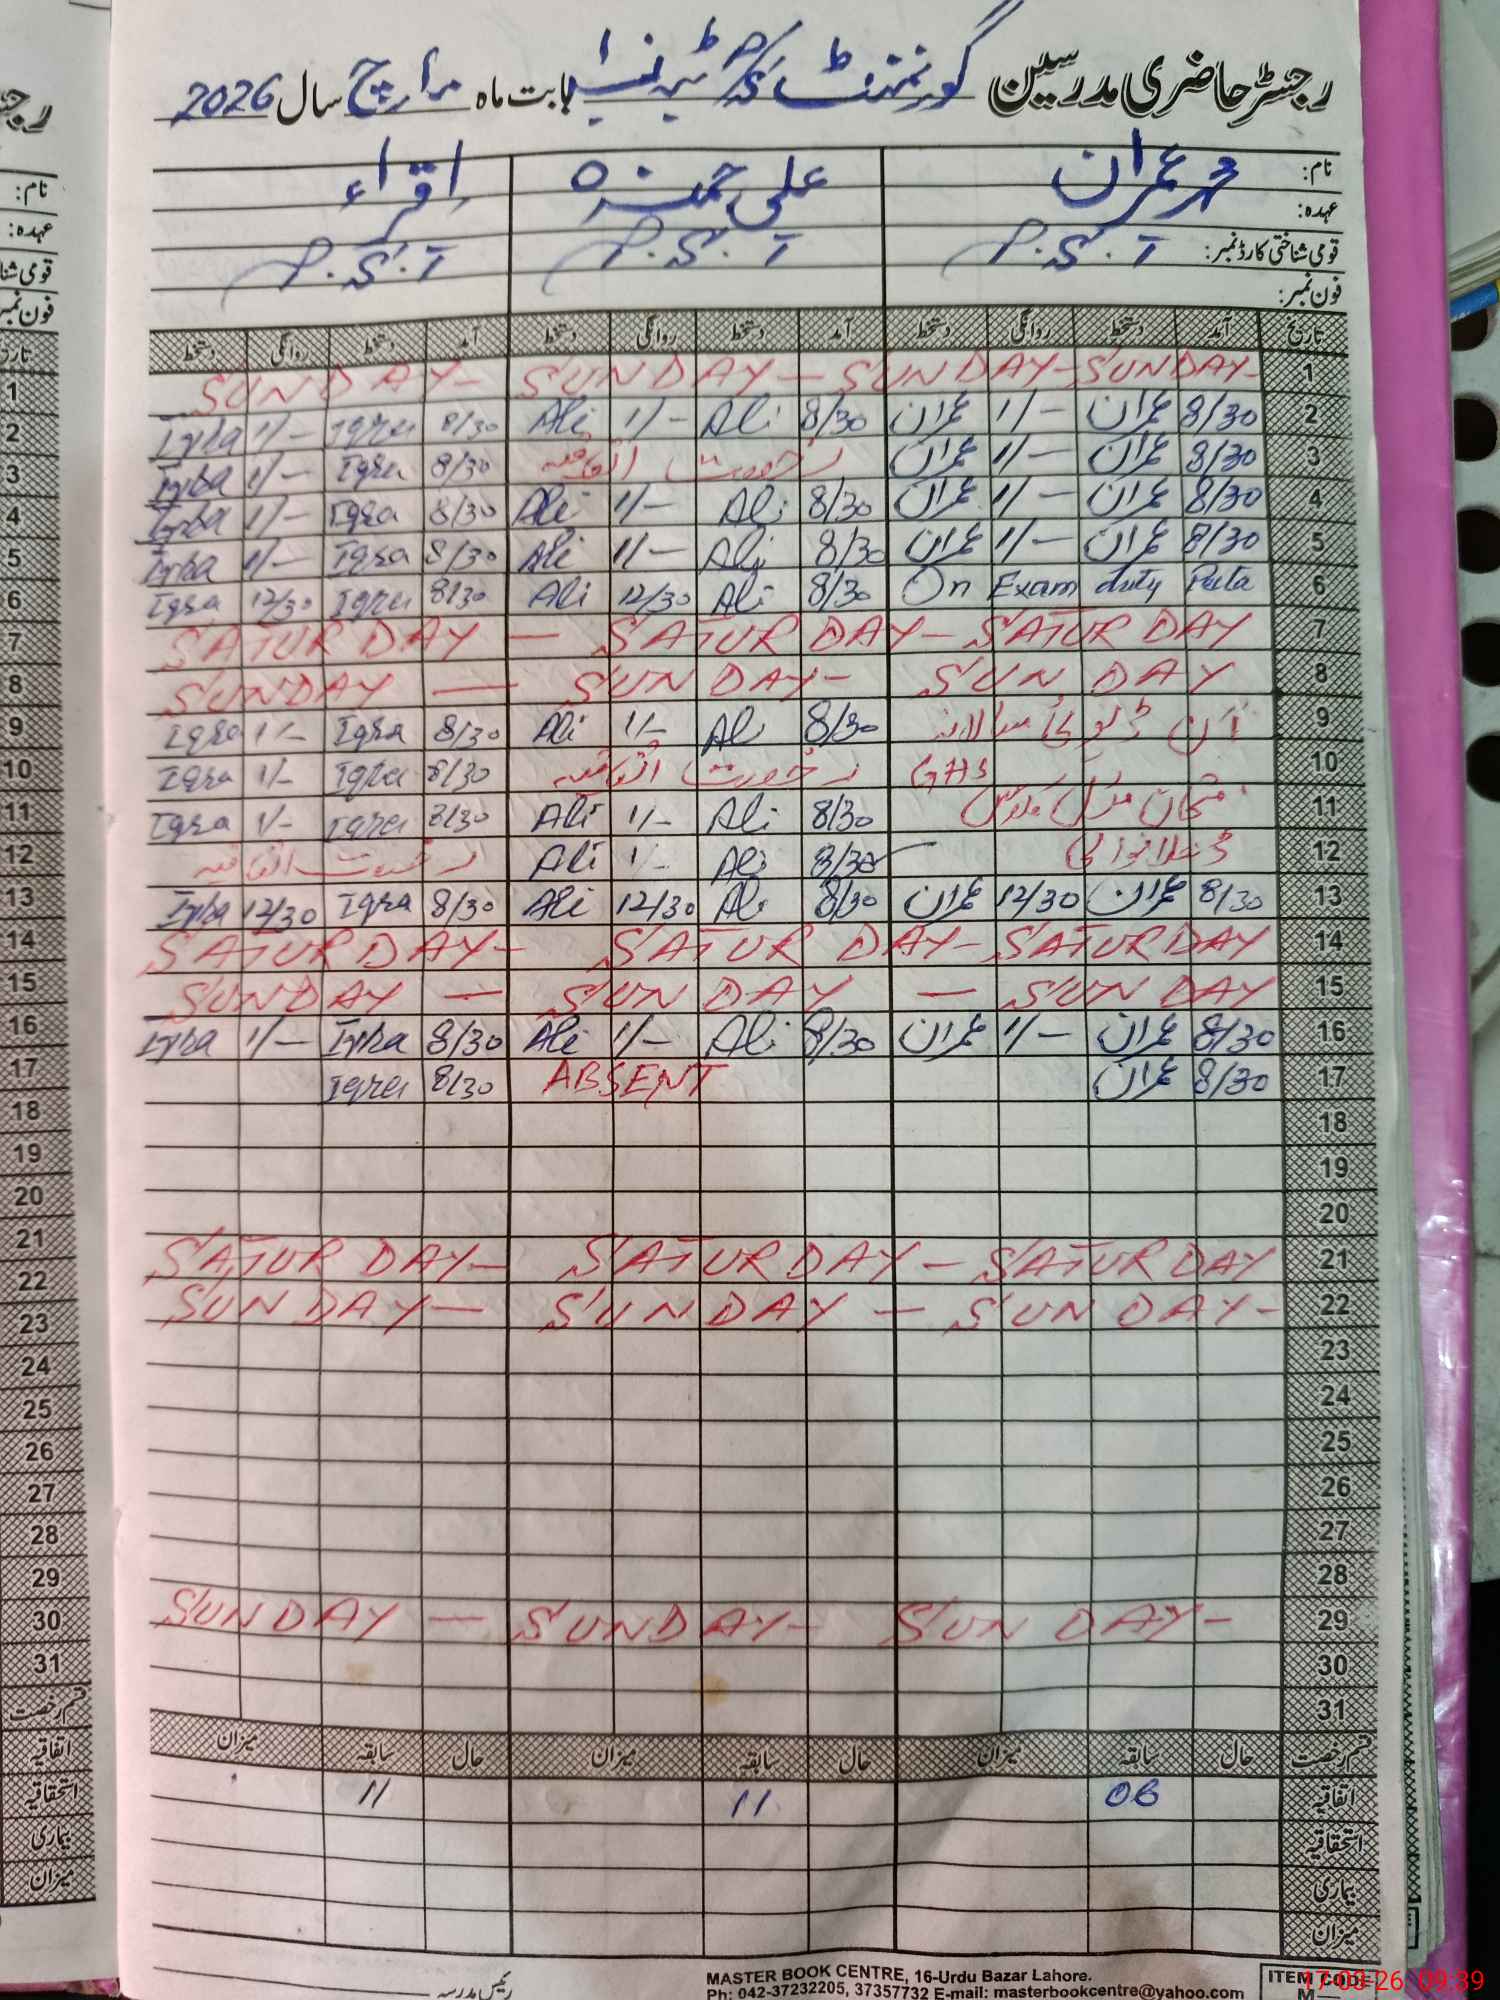 رجسٹر حاضری مدرسین گورنمنٹ بابت ماہ مارچ سال 2026
نام: محمد عمران علی حمزہ اقراء
عہدہ:
قومی شناختی کارڈ نمبر: P.S.T P.S.T P.S.T
فون نمبر:
تاریخ آمد دستخط روانگی دستخط آمد دستخط روانگی دستخط آمد دستخط روانگی دستخط
1 SUNDAY - SUNDAY - SUNDAY - SUNDAY -
2 8/30 عمران 1/- عمران 8/30 Ali 1/- Ali 8/30 Iqra 1/- Iqra
3 8/30 عمران 1/- عمران رخصت اتفاقیہ 8/30 Iqra 1/- Iqra
4 8/30 عمران 1/- عمران 8/30 Ali 1/- Ali 8/30 Iqra 1/- Iqra
5 8/30 عمران 1/- عمران 8/30 Ali 1/- Ali 8/30 Iqra 1/- Iqra
6 On Exam duty 8/30 Ali 12/30 Ali 8/30 Iqra 12/30 Iqra
7 SATURDAY - SATURDAY - SATURDAY
8 SUNDAY - SUNDAY - SUNDAY
9 آن ڈیوٹی سالانہ 8/30 Ali 1/- Ali 8/30 Iqra 1/- Iqra
10 GHS رخصت اتفاقیہ 8/30 Iqra 1/- Iqra
11 امتحان مڈل کلاس 8/30 Ali 1/- Ali 8/30 Iqra 1/- Iqra
12 8/30 Ali 1/- Ali رخصت اتفاقیہ
13 8/30 عمران 12/30 عمران 8/30 Ali 12/30 Ali 8/30 Iqra 12/30 Iqra
14 SATURDAY - SATURDAY - SATURDAY
15 SUNDAY - SUNDAY - SUNDAY
16 8/30 عمران 1/- عمران 8/30 Ali 1/- Ali 8/30 Iqra 1/- Iqra
17 8/30 عمران ABSENT 8/30 Iqra
18
19
20
21 SATURDAY - SATURDAY - SATURDAY
22 SUNDAY - SUNDAY - SUNDAY -
23
24
25
26
27
28
29 SUNDAY - SUNDAY - SUNDAY -
30
31
قسم رخصت حال سابقہ میزان حال سابقہ میزان حال سابقہ میزان
اتفاقیہ 06 11 11
استحقاقیہ
بیماری
میزان
رئیس مدرسہ
MASTER BOOK CENTRE, 16-Urdu Bazar Lahore.
Ph: 042-37232205, 37357732 E-mail: masterbookcentre@yahoo.com
ITEM CODE
M—
17-03-26 09:39
رجسٹر
نام:
عہدہ:
قومی شنا
فون نمبر
تاریخ
1
2
3
4
5
6
7
8
9
10
11
12
13
14
15
16
17
18
19
20
21
22
23
24
25
26
27
28
29
30
31
قسم رخصت
اتفاقیہ
استحقاقیہ
بیماری
میزان